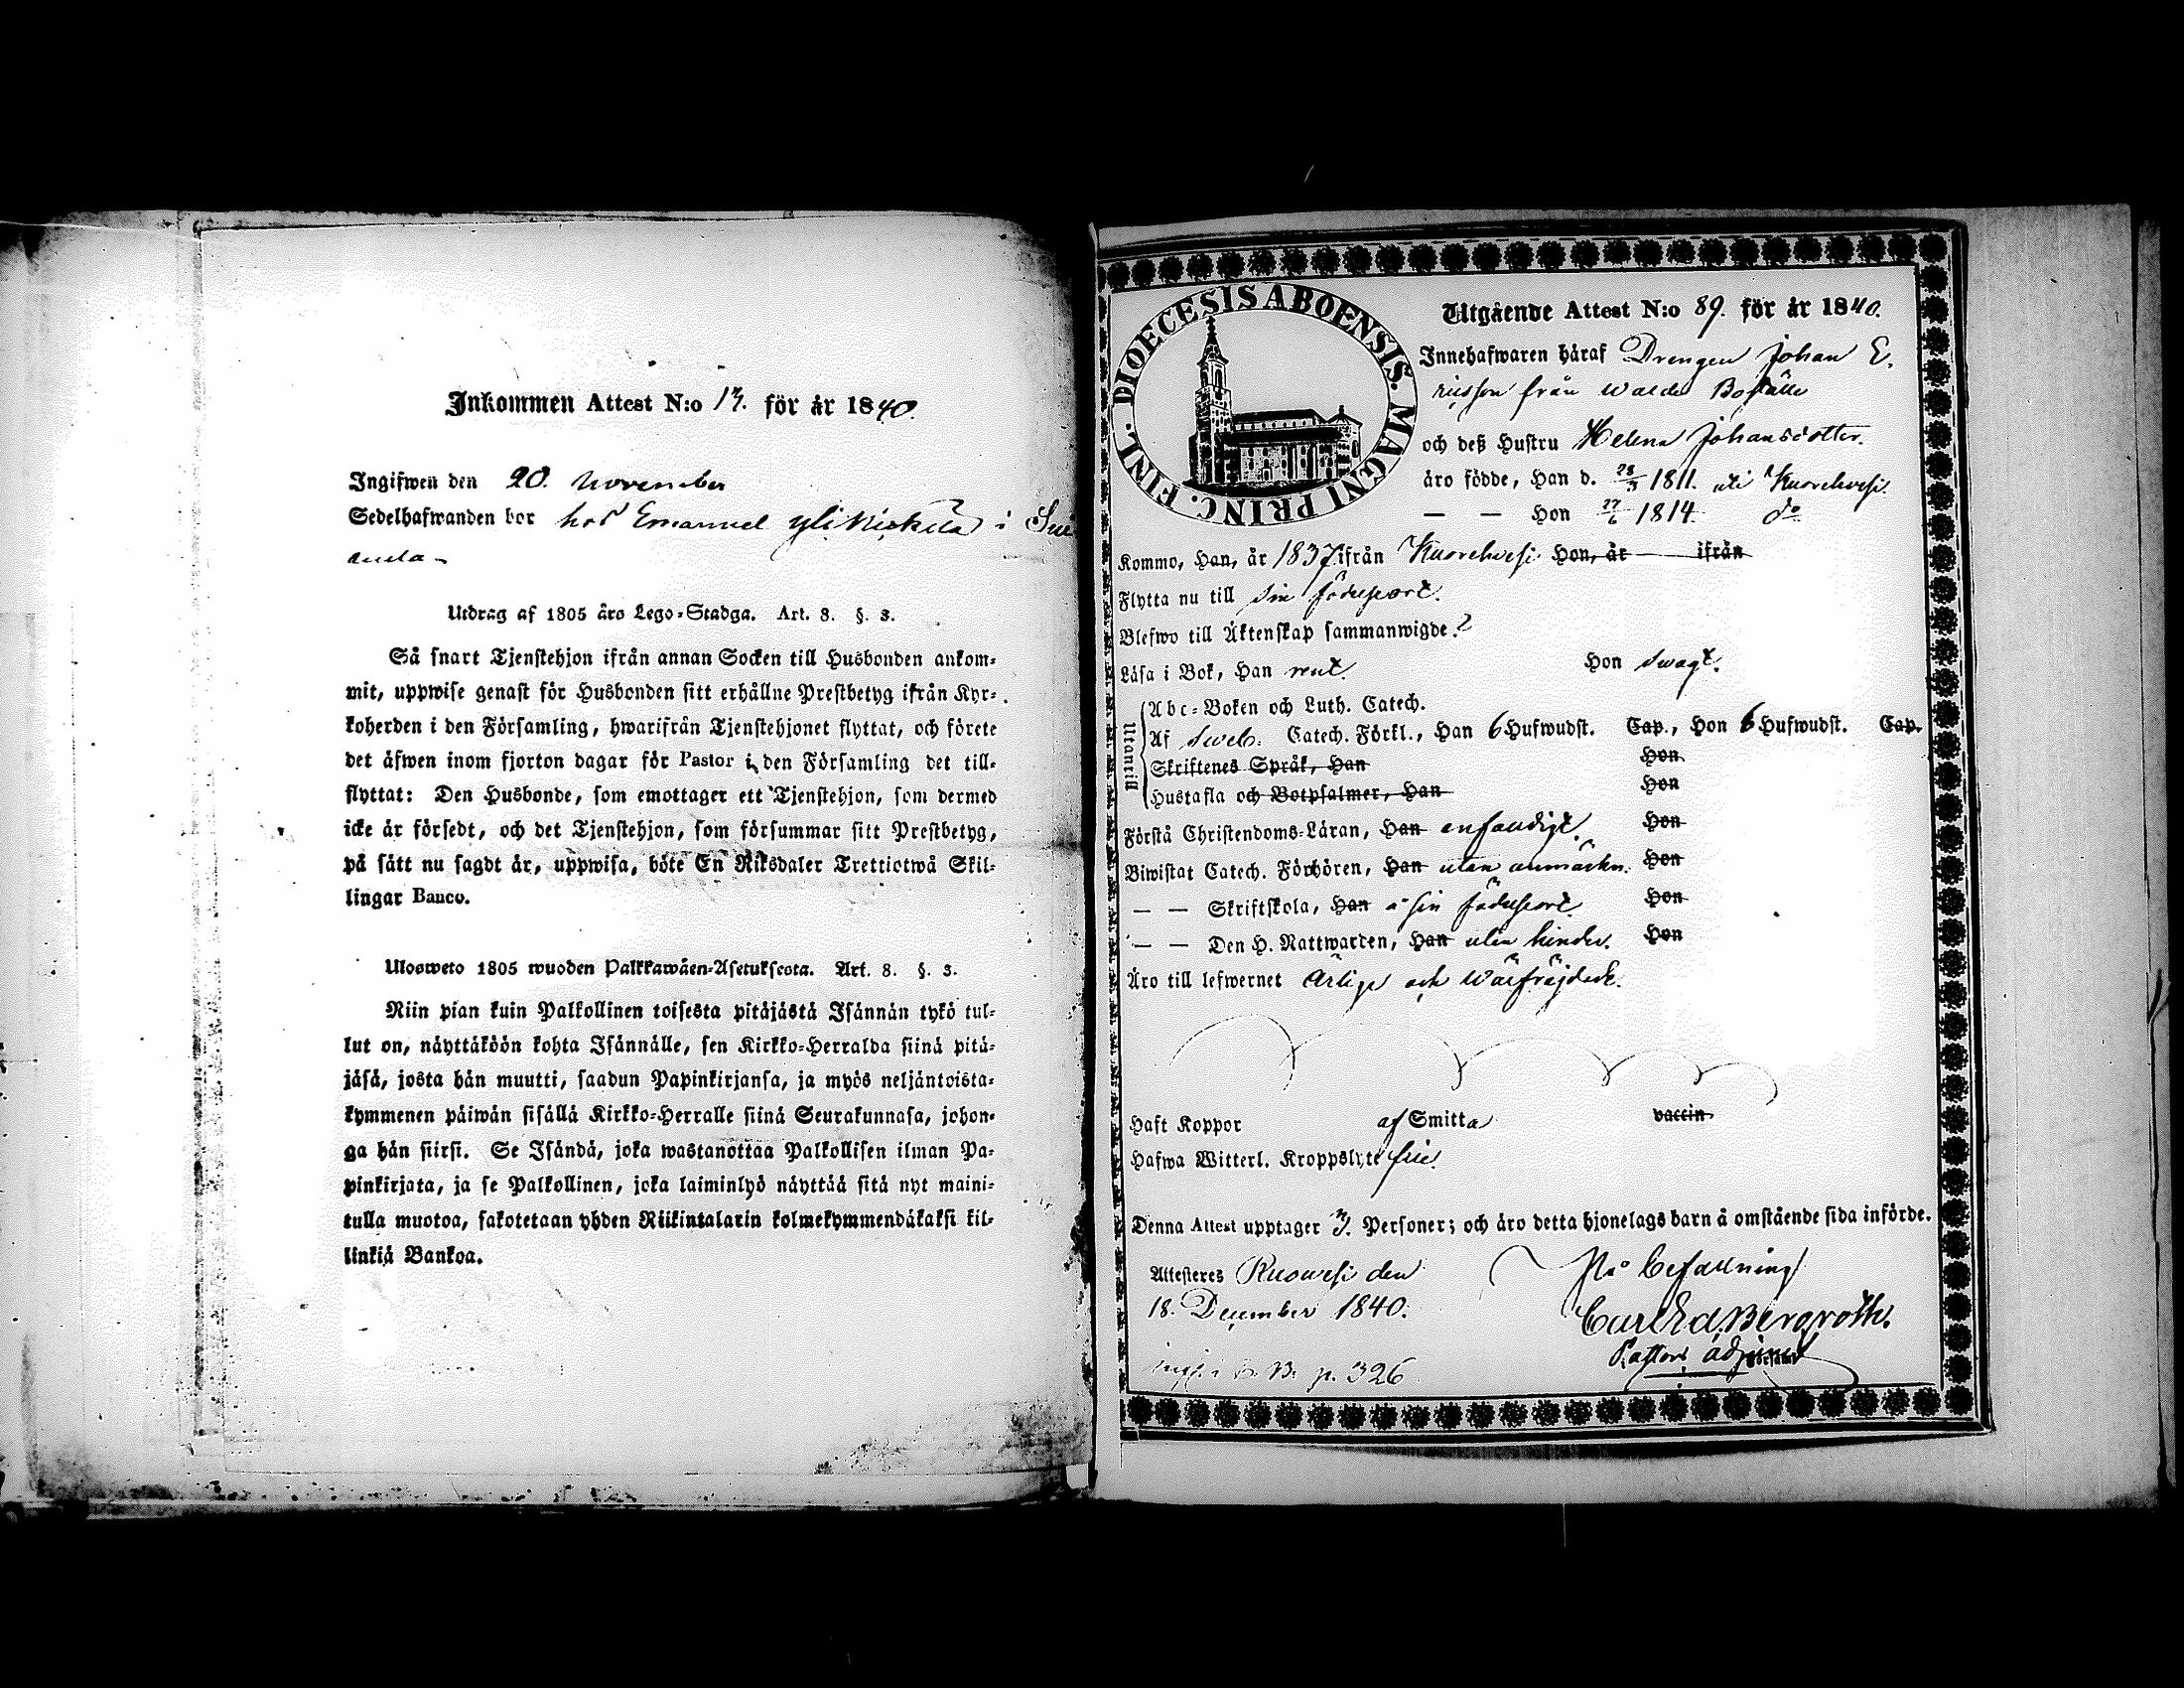 Inkommen Attest N:o 17. för år 1840.
Ingifwen den 20. November
Sedelhafwanden bor hos Emanuel yli Kiskila i
Utdrag af 1805 års Lego-Stadga. Art. 8. §. 3.
Så snart Tjenstehjon ifrån annan Socken till Husbonden ankom-
mit, uppwise genast för Husbonden sitt erhållne Prestbetyg ifrån Kyr-
koherden i den Församling, hwarifrån Tjenstehjonet flyttat, och förete
det äfwen inom fjorton dagar för Pastor i den Församling det till-
flyttat: Den Husbonde, som emottager ett Tjenstehjon, som dermed
icke är försedt, och det Tjenstehjon, som försummar sitt Prestbetyg,
på sätt nu sagdt är, uppwisa, böte En Riksdaler Trettiotwå Skil-
lingar Banco.
Ulosweto 1805 wuoden Palkkawäen-Asetuksesta. Art. 8. §. 3.
Niin pian kuin Palkollinen toisesta pitäjästä Isännän tykö tul-
lut on, näyttäköön kohta Isännälle, sen Kirkko-Herralda siinä pitä-
jäsä, josta hän muutti, saadun Papinkirjansa, ja myös neljäntoista-
kymmenen päiwän sisällä Kirkko-Herralle siinä Seurakunnasa, johon-
ga hän siirsi. Se Isändä, joka wastanottaa Palkollisen ilman Pa-
pinkirjata, ja se Palkollinen, joka laiminlyö näyttää sitä nyt maini-
tulla muotoa, sakotetaan yhden Riikintalarin kolmekymmendäkaksi kil-
linkiä Bankoa.
DIOECESIS ABOENSIS. MAGNI PRINC. FINL.
Utgående Attest N:o 89. för år 1840.
Innehafwaren häraf Drengen Johan E.
ricsson från Walde Boställe
och deß Hustru Helena Johansdotter.
äro födde, Han d. 28/3 1811. uti Kuorehvesi.
— — Hon 27/6 1814. do
Kommo, Han, år 1837 ifrån Kuorehvesi Hon, år ifrån
Flytta nu till sin födelseort.
Blefwo till Äktenskap sammanwigde.?
Läsa i Bok, Han rent. Hon swagt.
Utantill
Abc-Boken och Luth. Catech.
Af Sweb. Catech. Förkl., Han 6 Hufwudst. Cap., Hon 6 Hufwudst. Cap.
Skriftenes Språk, Han Hon
Hustafla och Botpsalmer, Han Hon
Förstå Christendoms-Läran, Han enfaldigt. Hon
Biwistat Catech. Förhören, Han utan anmärkn. Hon
— — Skriftskola, Han å sin födelseort. Hon
— — Den H. Nattwarden, Han utan hinder. Hon
Äro till lefwernet ärlige och wälfräjdade.
Haft Koppor af Smitta vaccin
Hafwa Witterl. Kroppslyte frie.
Denna Attest upptager 3. Personer; och äro detta hjonelags barn å omstående sida införde.
Attesteres Kuorvesi den
18. December 1840.
På befallning
Carl Ed. Bergroth.
Pastors adjunct
p. 326